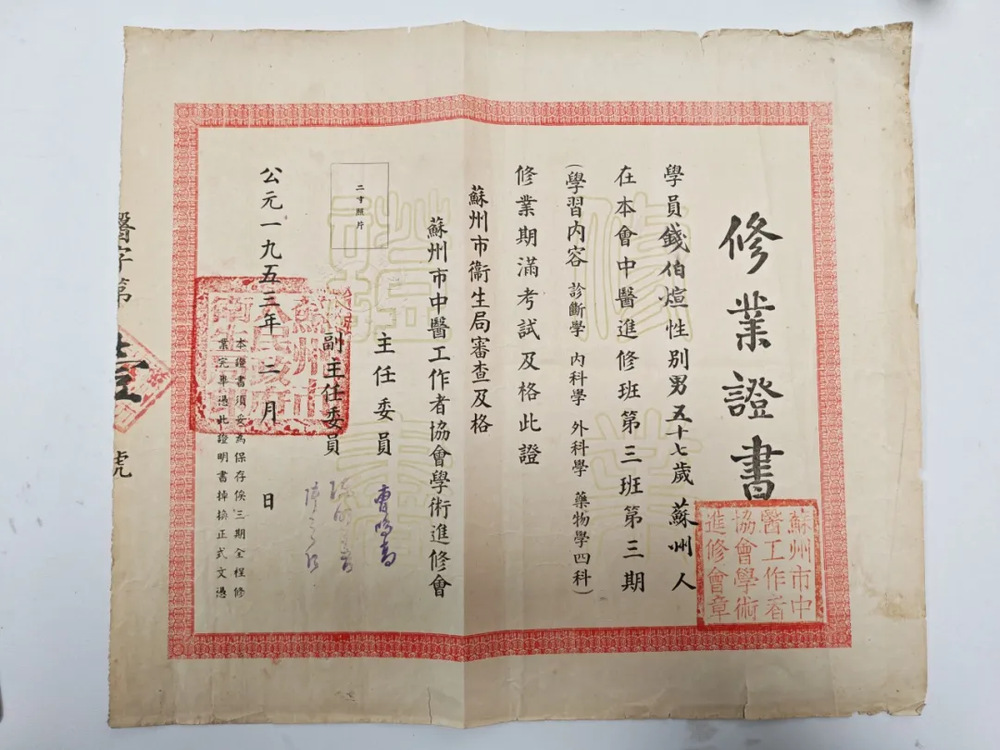 修業證書
學員錢伯煊性別男五十七歲蘇州人
在本會中醫進修班第三班第三期
(學習内容 診斷學 内科學 外科學 藥物學四科)
修業期滿考試及格此證
蘇州市衛生局審查及格
蘇州市中醫工作者協會學術進修會
主任委員 曹鳴高
副主任委員
二寸照片
公元一九五三年二月 日
本證書須妥為保存俟三期全程修
業完畢憑此證明書掉換正式文憑
醫字第 壹 號
蘇州市中
醫工作者
協會學術
進修會章
修業證書
蘇州市
人民政府